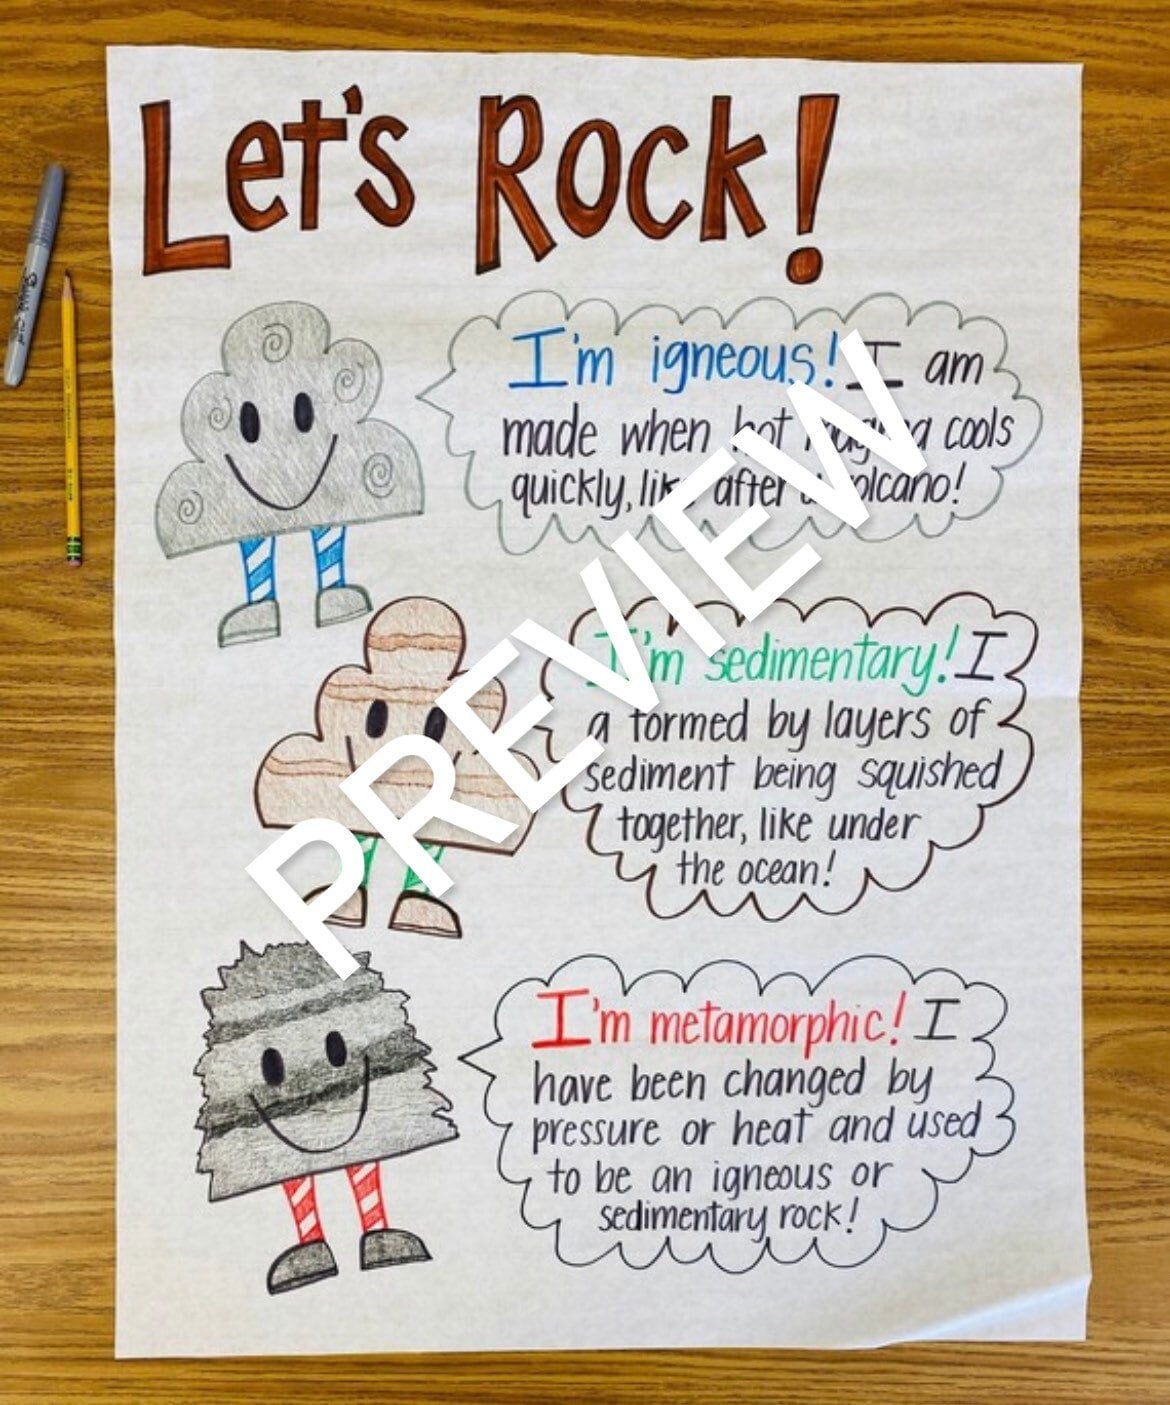 Let's Rock!
I'm igneous! I am
made when hot magma cools
quickly, like after a volcano!
I'm sedimentary! I
a formed by layers of
sediment being squished
together, like under
the ocean!
I'm metamorphic! I
have been changed by
pressure or heat and used
to be an igneous or
sedimentary rock!
PREVIEW